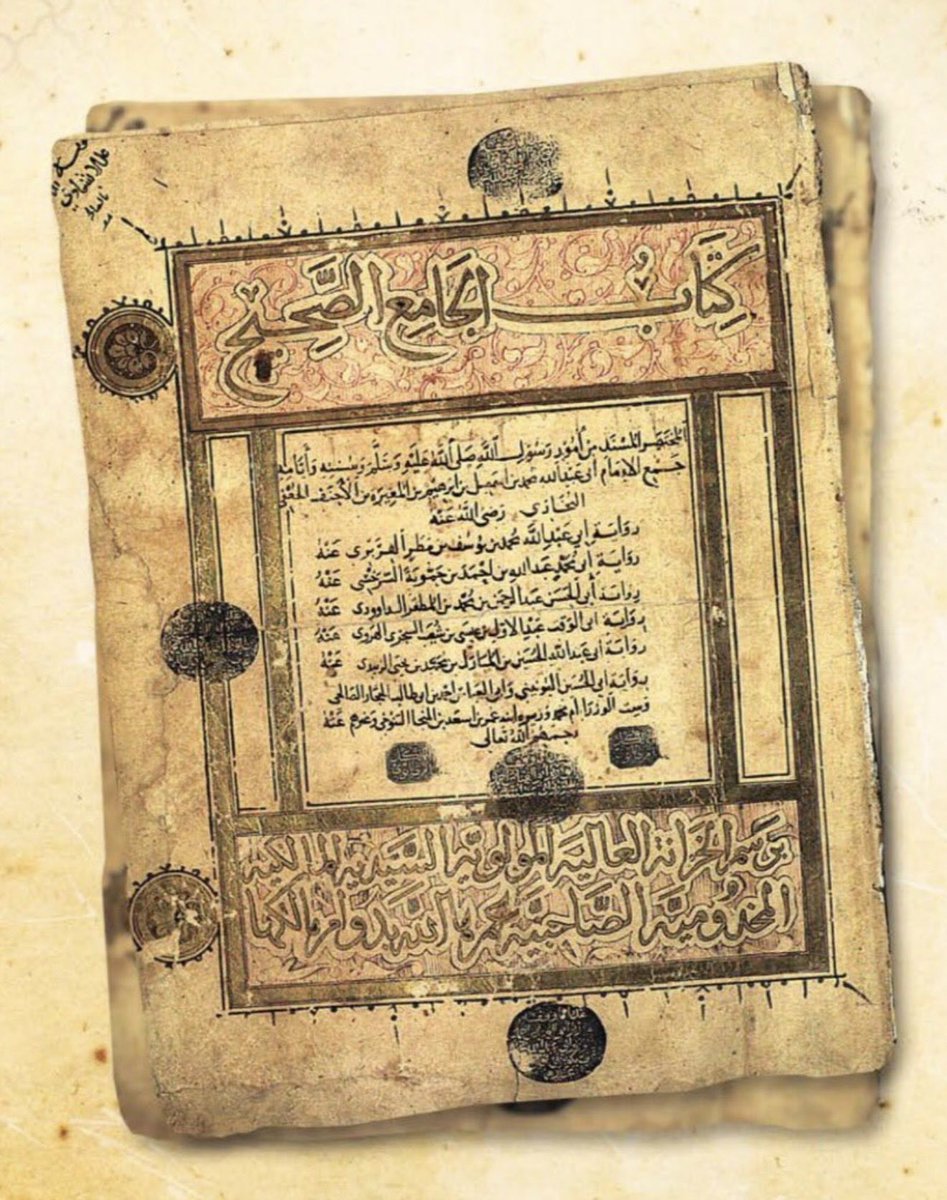 كِتَابُ الجَامِع الصَّحِيح
المختصر المسند من أمور رسول الله صلى الله عليه وسلم وسننه وأيامه
جمع الإمام أبي عبد الله محمد بن اسمعيل بن ابرهيم بن المغيرة بن الأحنف الجعفي
البخاري رضي الله عنه
رواية أبي عبد الله محمد بن يوسف بن مطر الفربري عنه
رواية أبي محمد عبد الله بن احمد بن حمويه السرخسي عنه
رواية أبي الحسن عبد الرحمن بن محمد بن المظفر الداوودي عنه
رواية أبي الوقت عبد الأول بن عيسى بن شعيب السجزي الهروي عنه
رواية أبي عبد الله الحسين بن المبارك بن محمد بن يحيى الزبيدي عنه
رواية أبي الحسين اليونيني وأبي العباس احمد بن أبي طالب الحجار الصالحي
وست الوزرا أم محمد وزيره ابنه عمر بن اسعد بن المنجا التنوخي عنه
رحمهم الله تعالى
برسم الخزانة العالية المولوية السيدية المالكية
المخدومية الصاحبية عمرها الله بدوام مالكها